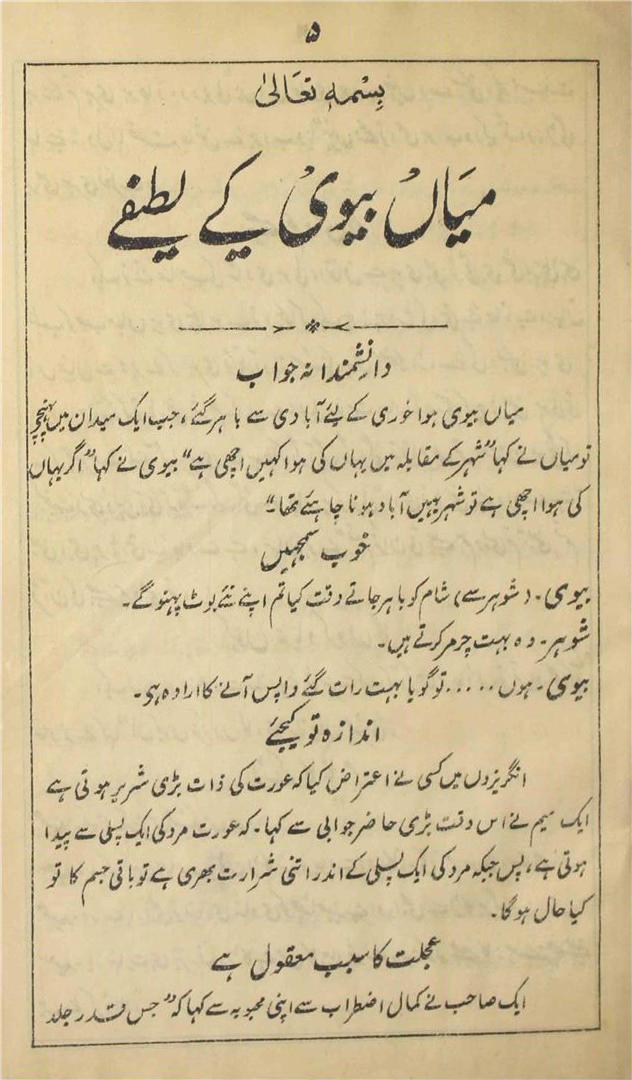 ۵
بسمہ تعالیٰ
میاں بیوی کے لطیفے
دانشمندانہ جواب
میاں بیوی ہوا خوری کے لیٔے آبادی سے باہر گئے، جب ایک میدان میں پہنچے
تو میاں نے کہا "شہر کے مقابلہ میں یہاں کی ہوا کہیں اچھی ہے" بیوی نے کہا "اگر یہاں
کی ہوا اچھی ہے تو شہر یہیں آباد ہونا چاہئے تھا"
خوب سمجہیں
بیوی۔ (شوہر سے) شام کو باہر جاتے وقت کیا تم اپنے نئے بوٹ پہنو گے۔
شوہر۔ وہ بہت چرمر کرتے ہیں۔
بیوی۔ ہوں ..... تو گویا بہت رات گئے واپس آنے کا ارادہ ہی۔
اندازہ تو کیجئے
انگریزوں میں کسی نے اعتراض کیا کہ عورت کی ذات بڑی شریر ہوتی ہے
ایک میم نے اس وقت بڑی حاضر جوابی سے کہا۔ کہ عورت مرد کی ایک پسلی سے پیدا
ہوتی ہے، پس جبکہ مرد کی ایک پسلی کے اندر اتنی شرارت بھری ہے تو باقی جسم کا تو
کیا حال ہو گا۔
عجلت کا سبب معقول ہے
ایک صاحب نے کمال اضطراب سے اپنی محبوبہ سے کہا کہ "جس قدر جلد